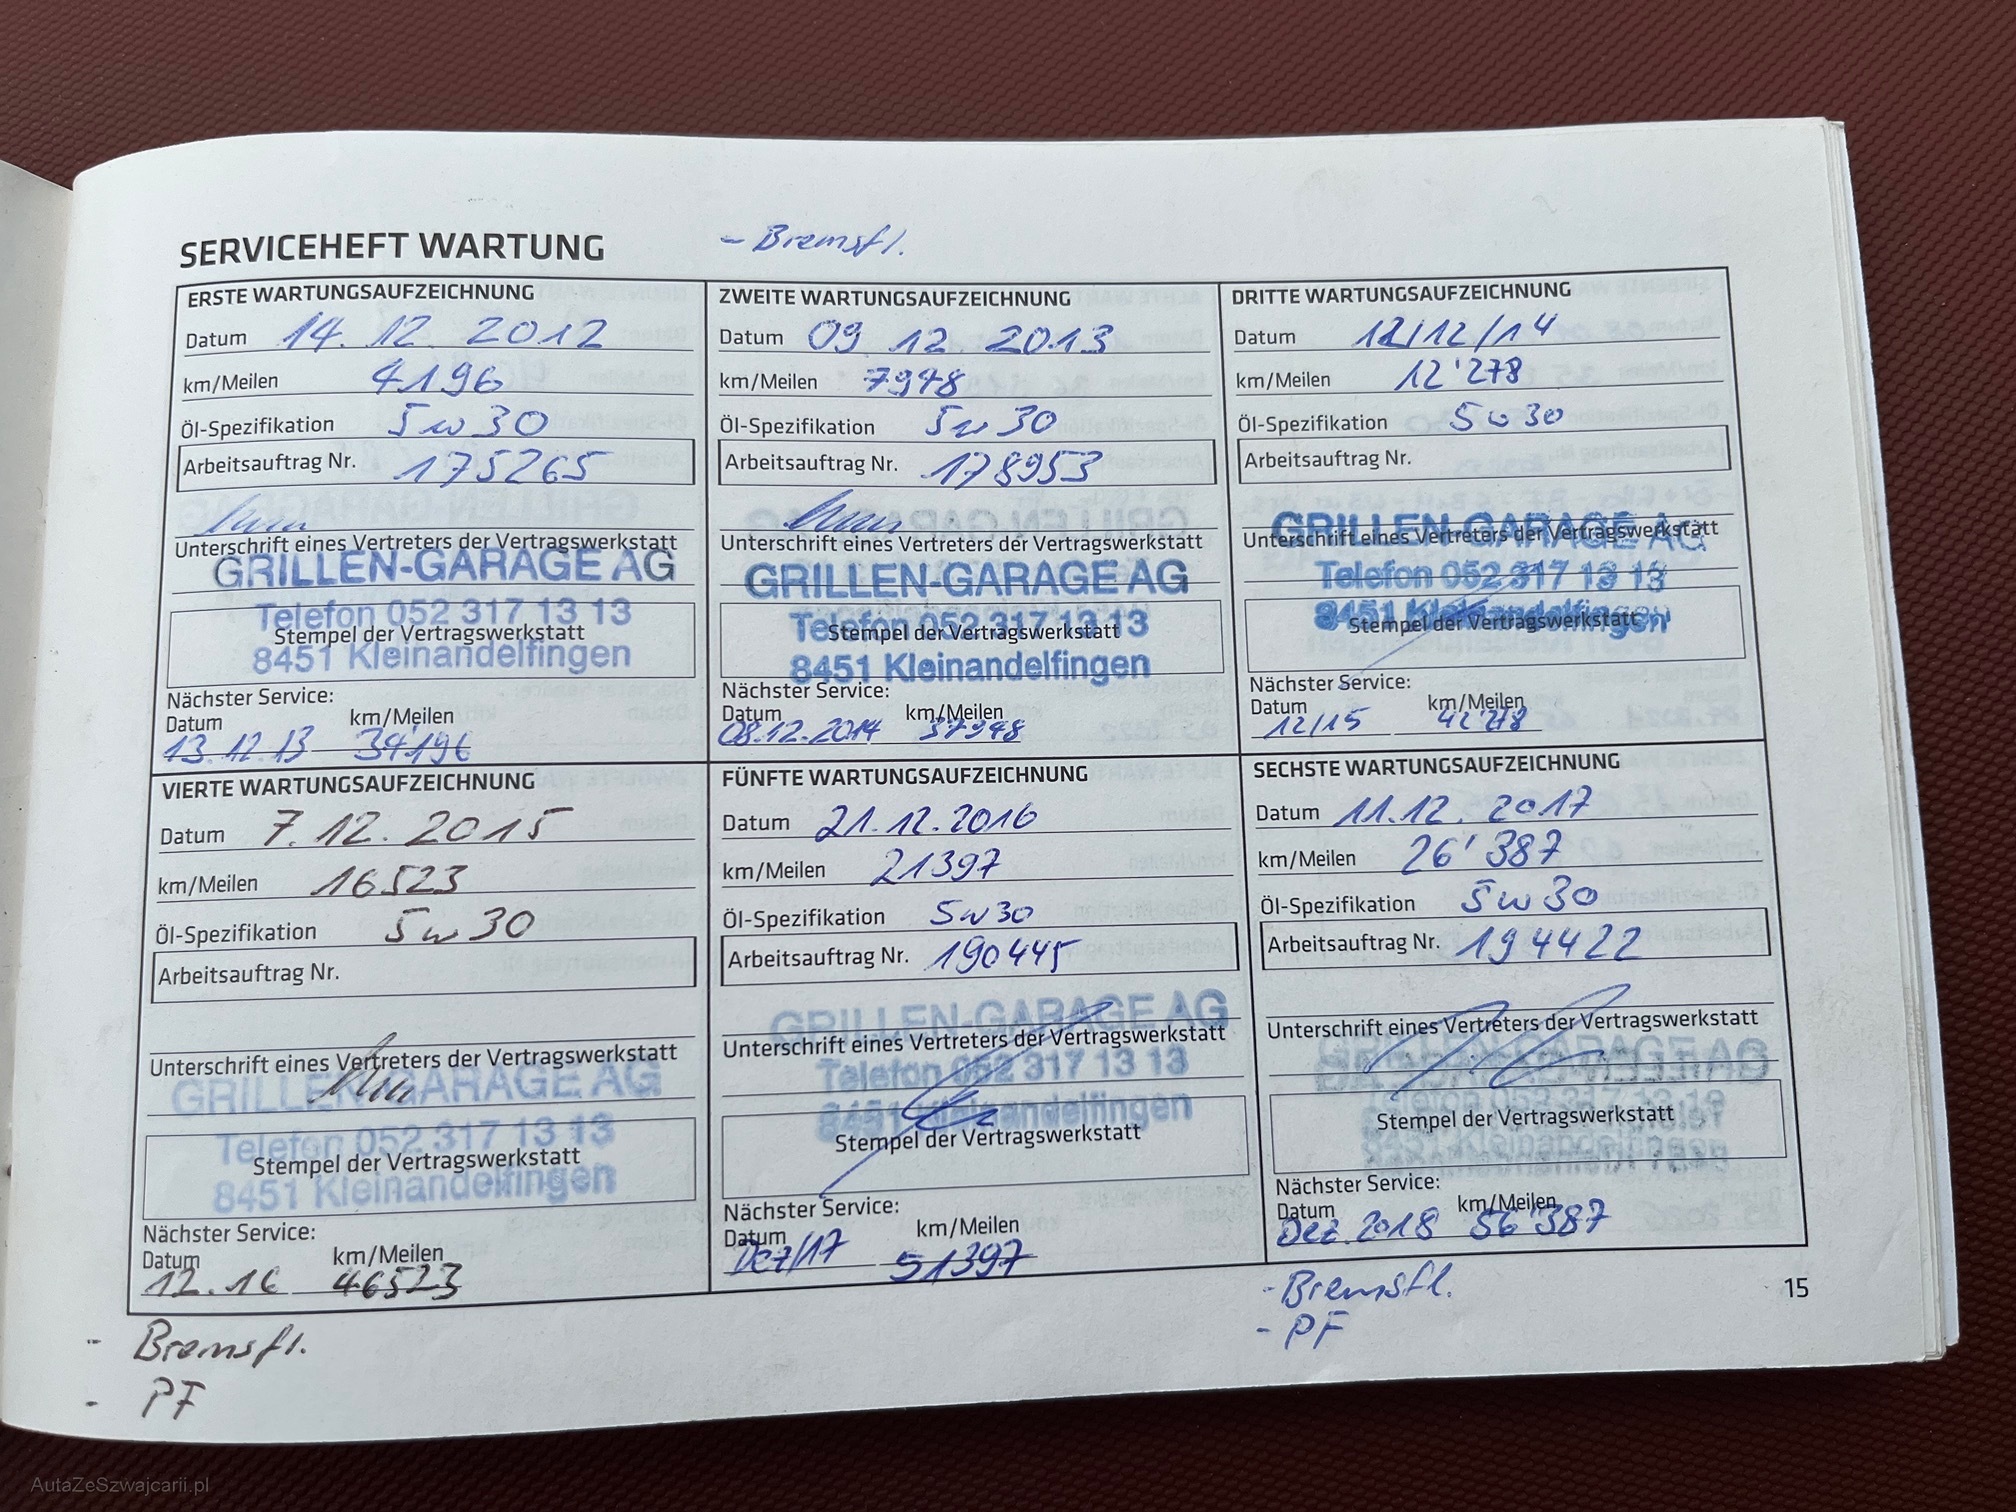 SERVICEHEFT WARTUNG
- Bremsfl.
ERSTE WARTUNGSAUFZEICHNUNG
Datum 14.12.2012
km/Meilen 4196
Öl-Spezifikation 5w30
Arbeitsauftrag Nr. 175265
Unterschrift eines Vertreters der Vertragswerkstatt
GRILLEN-GARAGE AG
Telefon 052 317 13 13
Stempel der Vertragswerkstatt
8451 Kleinandelfingen
Nächster Service:
Datum km/Meilen
13.12.13 34'196
ZWEITE WARTUNGSAUFZEICHNUNG
Datum 09.12.2013
km/Meilen 7948
Öl-Spezifikation 5w30
Arbeitsauftrag Nr. 178953
Unterschrift eines Vertreters der Vertragswerkstatt
GRILLEN-GARAGE AG
Telefon 052 317 13 13
Stempel der Vertragswerkstatt
8451 Kleinandelfingen
Nächster Service:
Datum km/Meilen
08.12.2014 37948
DRITTE WARTUNGSAUFZEICHNUNG
Datum 12/12/14
km/Meilen 12'278
Öl-Spezifikation 5w30
Arbeitsauftrag Nr.
GRILLEN-GARAGE AG
Unterschrift eines Vertreters der Vertragswerkstatt
Telefon 052 317 13 13
8451 Kleinandelfingen
Stempel der Vertragswerkstatt
Nächster Service:
Datum km/Meilen
12/15 42'278
VIERTE WARTUNGSAUFZEICHNUNG
Datum 7.12.2015
km/Meilen 16523
Öl-Spezifikation 5w30
Arbeitsauftrag Nr.
Unterschrift eines Vertreters der Vertragswerkstatt
GRILLEN-GARAGE AG
Telefon 052 317 13 13
Stempel der Vertragswerkstatt
8451 Kleinandelfingen
Nächster Service:
Datum km/Meilen
12.16 46523
- Bremsfl.
- PF
FÜNFTE WARTUNGSAUFZEICHNUNG
Datum 21.12.2016
km/Meilen 21397
Öl-Spezifikation 5w30
Arbeitsauftrag Nr. 190445
GRILLEN-GARAGE AG
Unterschrift eines Vertreters der Vertragswerkstatt
Telefon 052 317 13 13
8451 Kleinandelfingen
Stempel der Vertragswerkstatt
Nächster Service:
Datum km/Meilen
Dez/17 51397
SECHSTE WARTUNGSAUFZEICHNUNG
Datum 11.12.2017
km/Meilen 26'387
Öl-Spezifikation 5w30
Arbeitsauftrag Nr. 194422
Unterschrift eines Vertreters der Vertragswerkstatt
GRILLEN-GARAGE AG
Stempel der Vertragswerkstatt
Nächster Service:
Datum km/Meilen
Dez.2018 56'387
- Bremsfl.
- PF
15
AutaZeSzwajcarii.pl